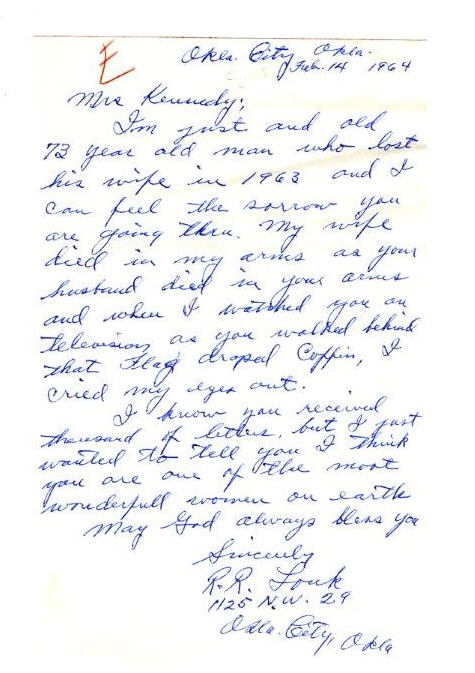 E
Okla. City Okla.
Feb. 14 1964
Mrs Kennedy;
I'm just and old
73 year old man who lost
his wife in 1963 and I
can feel the sorrow you
are going thru. My wife
died in my arms as your
husband died in your arms
and when I watched you on
television as you walked behind
that Flag draped Coffin, I
cried my eyes out.
I know you received
thousand of letters, but I just
wanted to tell you I think
you are one of the most
wonderfull women on earth
May God always bless you
Sincerely
R.R.
1125 N.W. 29
Okla. City, Okla